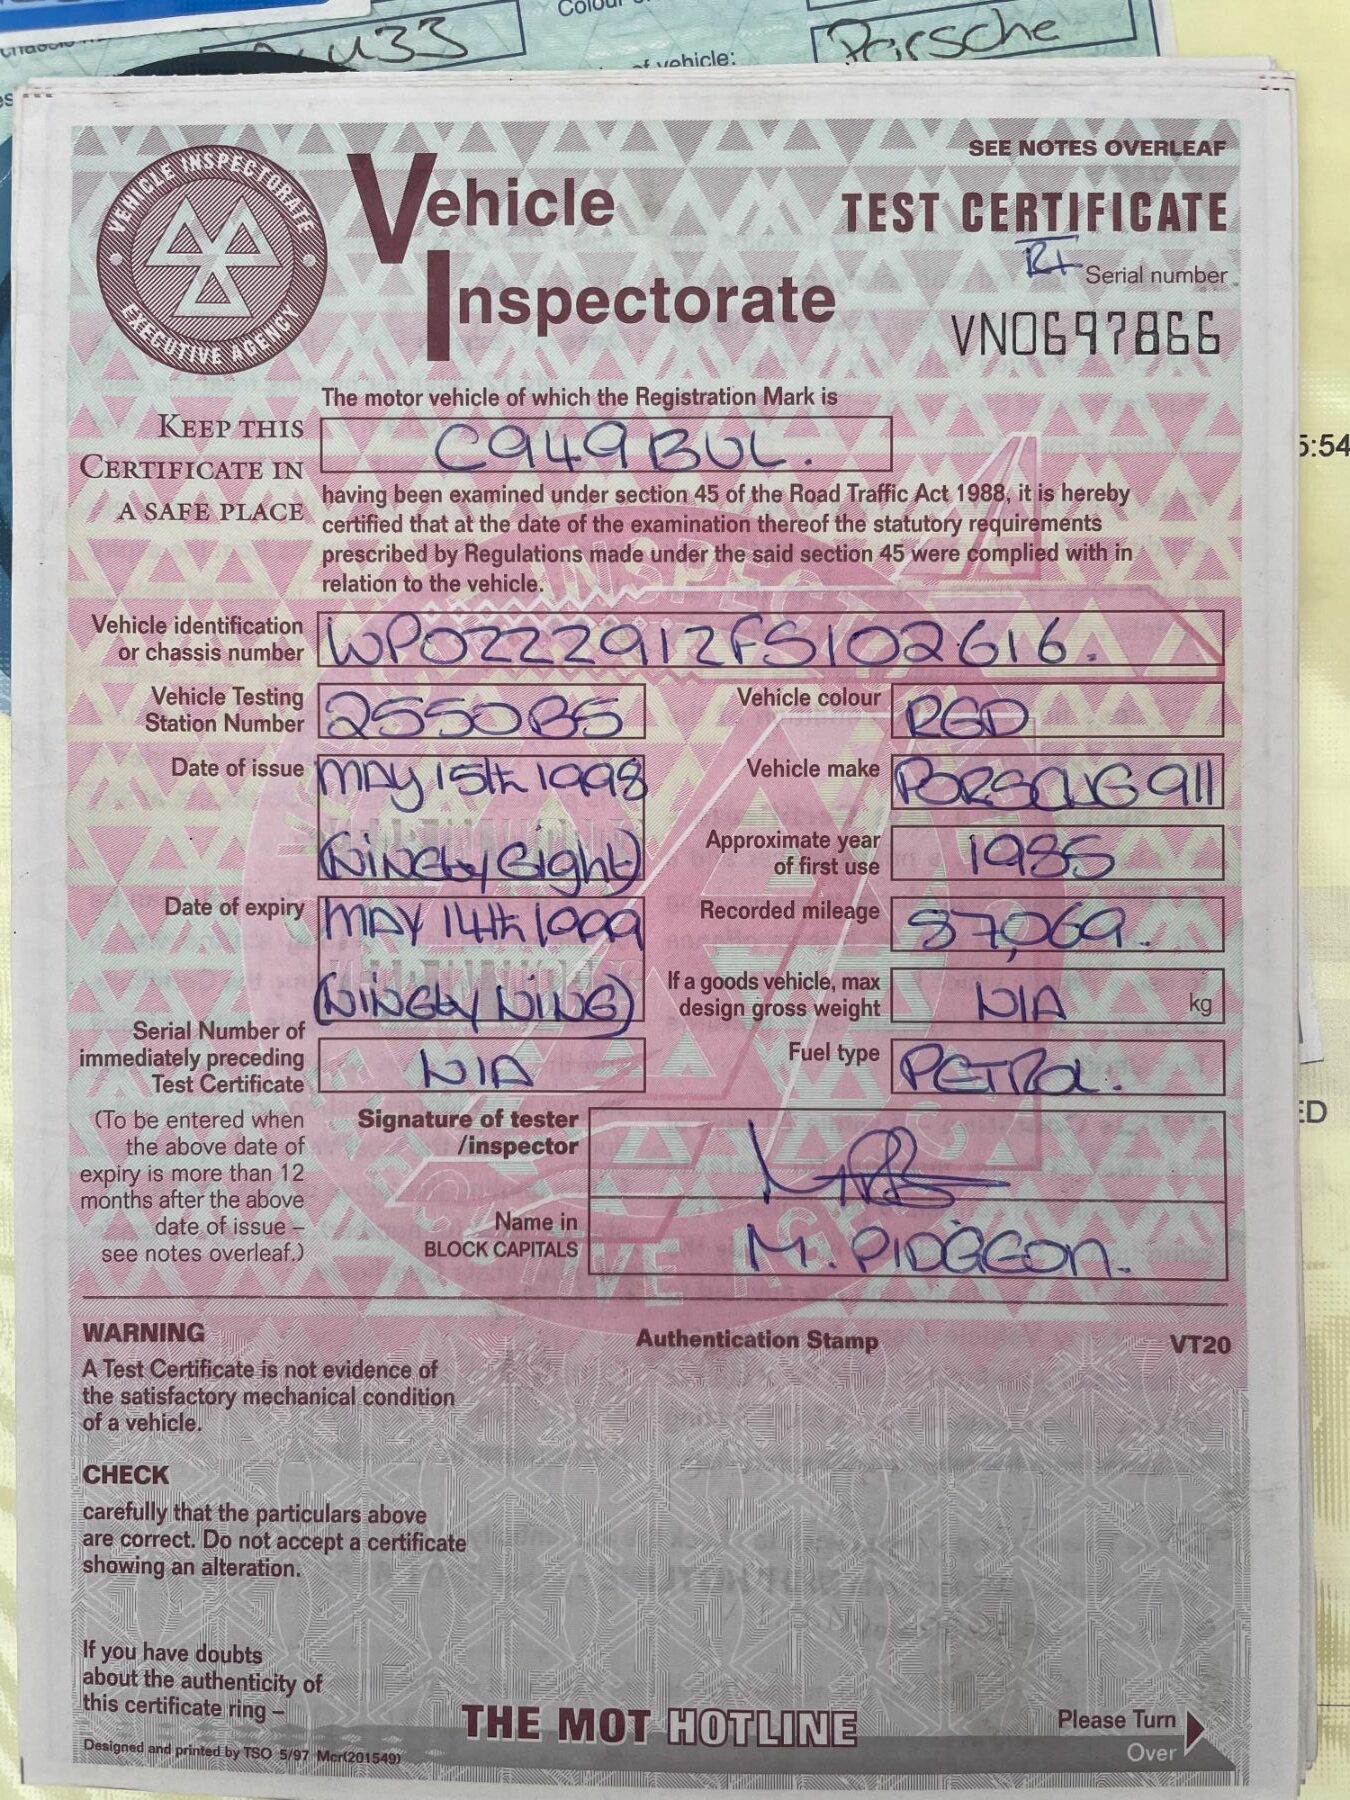 Colour
Porsche
u33
of vehicle:
SEE NOTES OVERLEAF
VEHICLE INSPECTORATE
EXECUTIVE AGENCY
Vehicle
Inspectorate
TEST CERTIFICATE
Serial number
VN0697866
The motor vehicle of which the Registration Mark is
KEEP THIS
CERTIFICATE IN
A SAFE PLACE
C949BUL.
having been examined under section 45 of the Road Traffic Act 1988, it is hereby
certified that at the date of the examination thereof the statutory requirements
prescribed by Regulations made under the said section 45 were complied with in
relation to the vehicle.
Vehicle identification
or chassis number
WP0ZZZ91ZFS102616.
Vehicle Testing
Station Number
2550B5
Vehicle colour
RED
Date of issue
MAY 15th 1998
(NINEty Eight)
Vehicle make
PORSCHE 911
Approximate year
of first use
1985
Date of expiry
MAY 14th 1999
(NINEty NINE)
Recorded mileage
87,069.
If a goods vehicle, max
design gross weight
N/A
kg
Serial Number of
immediately preceding
Test Certificate
N/A
Fuel type
PETROL.
(To be entered when
the above date of
expiry is more than 12
months after the above
date of issue –
see notes overleaf.)
Signature of tester
/inspector
Name in
BLOCK CAPITALS
M. PIDGEON.
WARNING
A Test Certificate is not evidence of
the satisfactory mechanical condition
of a vehicle.
Authentication Stamp
VT20
CHECK
carefully that the particulars above
are correct. Do not accept a certificate
showing an alteration.
If you have doubts
about the authenticity of
this certificate ring –
THE MOT HOTLINE
Please Turn
Over
Designed and printed by TSO 5/97 Mcr(201549)
5:54
ED